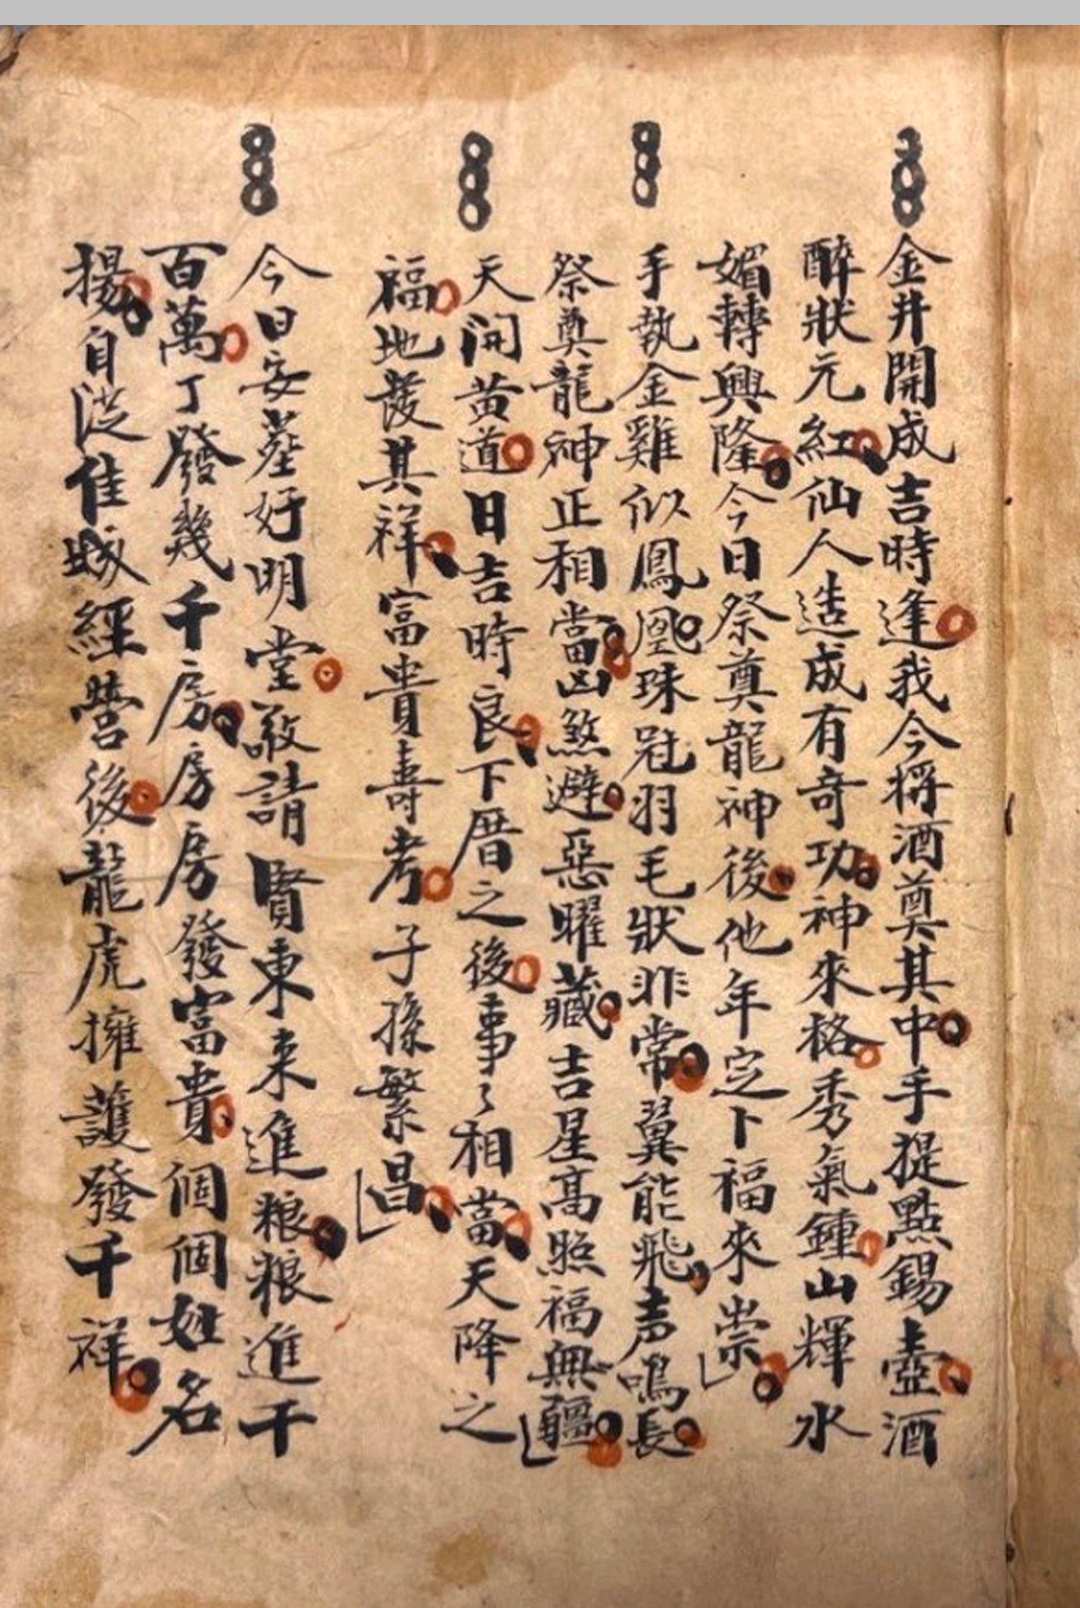 金井開成吉時逢我今將酒奠其中手提點錫壺酒
醉狀元紅仙人造成有奇功神來格秀氣鍾山輝水
媚轉興隆今日祭奠龍神後他年定卜福來崇
手執金雞似鳳凰珠冠羽毛狀非常翼能飛声鳴長
祭奠龍神正相當凶煞避惡曜藏吉星高照福無疆
天開黃道日吉時良下厝之後事々相當天降之
福地護其祥富貴壽考子孫繁昌
今日安塟好明堂敬請賢東来進粮粮進千
百萬丁發幾千房房房發富貴個個姓名
揚自從佳城經營後龍虎擁護發千祥